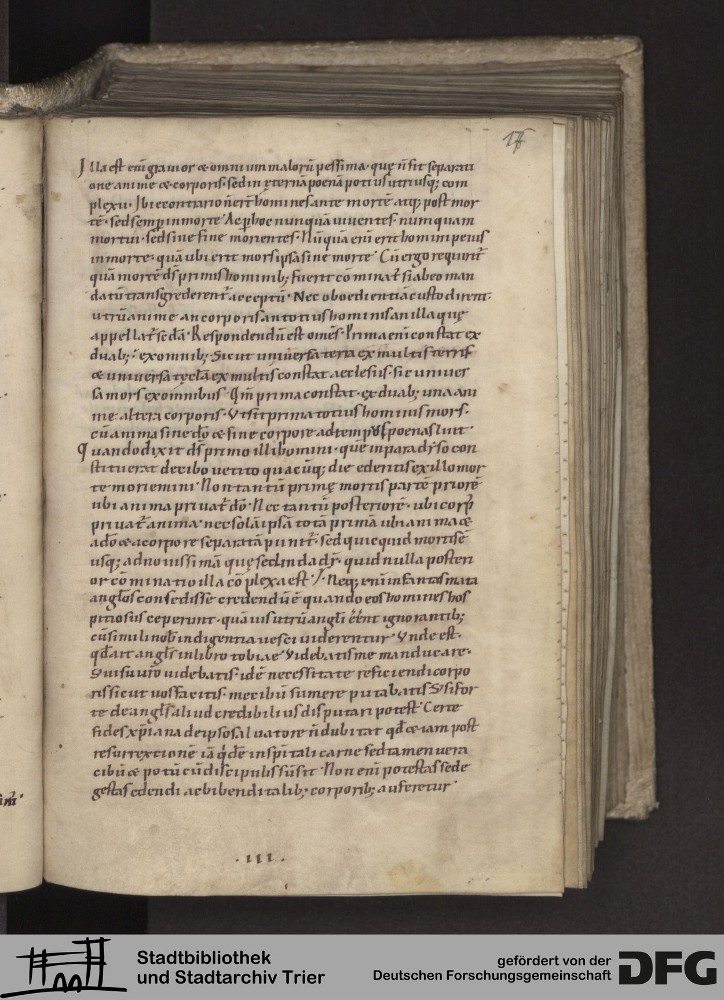 16
Illa est eni grauior & omnium maloru pessima· quę n̄ fit separati
one anime & corporis· sed in ęternā poenā potius utriusq; com
plexu· Ibi econtrario n̄ ert homines ante mortē atq; post mor
tē· sed semper in morte· Ac p hoc nunquā uiuentes· numquam
mortui· sed sine fine morientes· Nuquā eni erit homini peius
in morte· quā ubi erit mors ipsa sine morte· Cū ergo requirit̄
quā mortē ds primis hominib; fuerit cōminat̄ si ab eo man
datū transgrederent̄ acceptū· Nec oboedientiā custodirent·
utrū anime an corporis an totius hominis an illa quę
appellat̄ sedā· Respondendū est omēs· Prima eni constat ex
duab;· ex omnib; Sicut uniuersa terra ex multis terris
& uniuersa ęcłā ex multis constat aecclesiis· sic uniuer
sa mors ex omnibus· Qm̄ prima constat· ex duab; una ani
me altera corporis· Vt sit prima totius hominis mors·
cū anima sine dō & sine corpore ad temp̄ poenas luit·
Quando dixit ds primo illi homini· quē in paradyso con
stituerat de cibo uetito quacūq; die ederitis ex illo mor
te moriemini· Non tantū primę mortis partē priorē
ubi anima priuat̄ dō· Nec tantū posteriorē· ubi corp
priuat̄ anima· nec solā ipsā totā primā ubi anima &
a dō & a corpore separata punit̄· sed quicquid mortis ē
usq; ad nouissimā quę secunda dr̄· quid nulla posteri
or cōminatio illa cōplexa est· Neq; eni infantasmata
angłos comedisse credendū ē quando eos homines hos
pitio susceperunt· quāuis utrū angłi eēnt ignorantib;
cū simili nob indigentia uesci uiderentur· Vnde est·
qd ait angłs in libro tobiae· Videbatis me manducare·
S; uisu uro uidebatis· idē necessitate reficiendi corpo
ris sicut uos facitis· me cibū sumere putabatis· S; si for
te de angłs aliud credibilius disputari potest· Certe
fides xp̄iana de ipso saluatore n̄ dubitat qd & iam post
resurrextionē iā qdē in spiritali carne sed tamen uera
cibū & potū cū discipulis sūsit· Non eni potestas sed e
gestas edendi ac bibendi talib; corporib; auferetur·
·III·
Stadtbibliothek
und Stadtarchiv Trier
gefördert von der
Deutschen Forschungsgemeinschaft
DFG